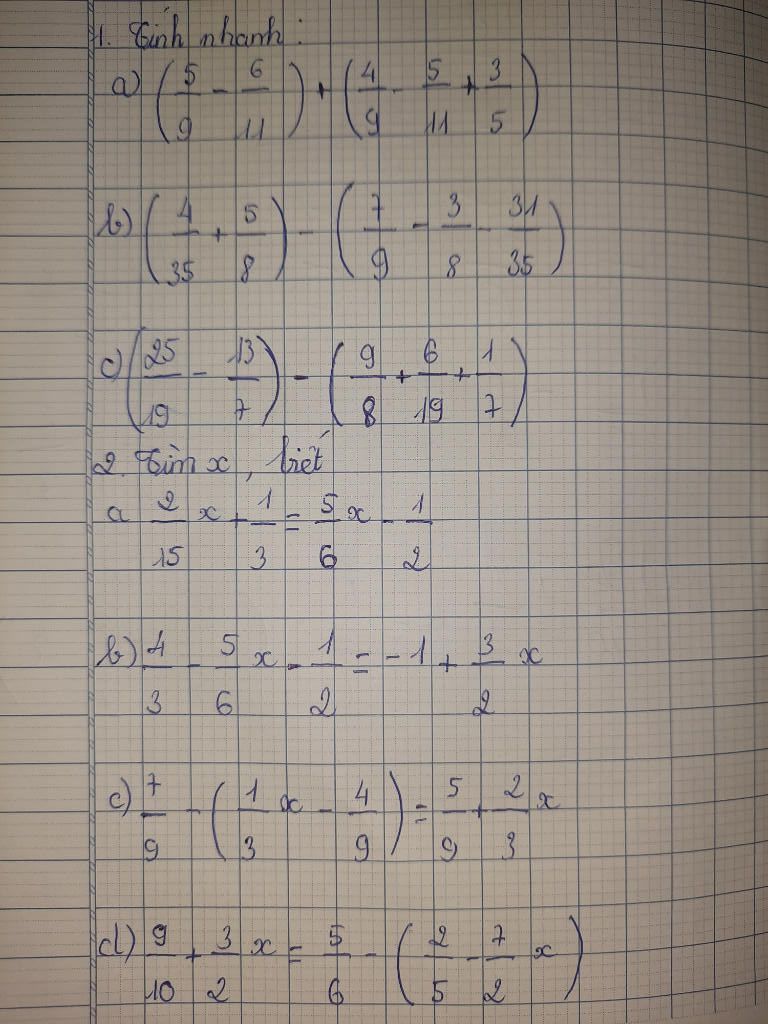 1. Tính nhanh:
a) (5/9 - 6/11) + (4/9 - 5/11 + 3/5)
b) (4/35 + 5/8) - (7/9 - 3/8 - 31/35)
c) (25/19 - 13/7) - (9/8 + 6/19 + 1/7)
2. Tìm x, biết
a 2/15 x + 1/3 = 5/6 x - 1/2
b) 4/3 - 5/6 x - 1/2 = -1 + 3/2 x
c) 7/9 - (1/3 x - 4/9) = 5/9 + 2/3 x
d) 9/10 + 3/2 x = 5/6 - (2/5 - 7/2 x)